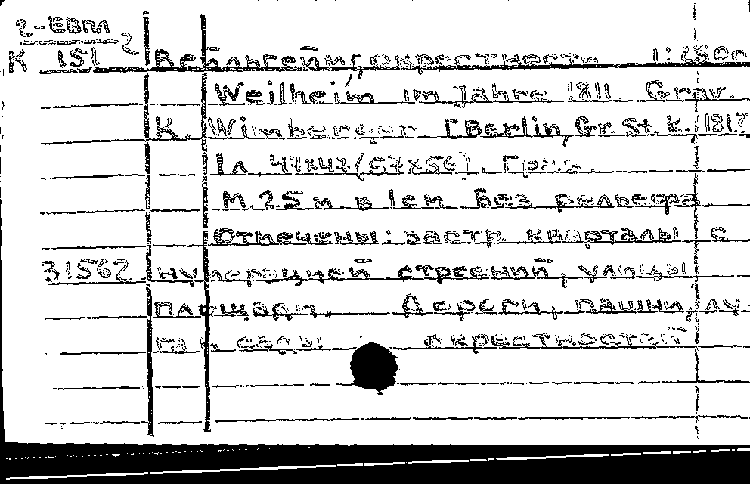 2-ЕВПЛ
К 151 2 Вейльгейм, окрестности 1:2500
Weilheim im Jahre 1811 Grav.
K. Wimberger. [Berlin, Gr. St. k., 1817
1л. 47х47 (67х56). Грав.
М. 25 м. в 1см. Без рельефа
Отмечены: застр. кварталы с
31562 нумерацией строений, улицы,
площади. Дороги, пашни, лу-
га и сады окрестностей